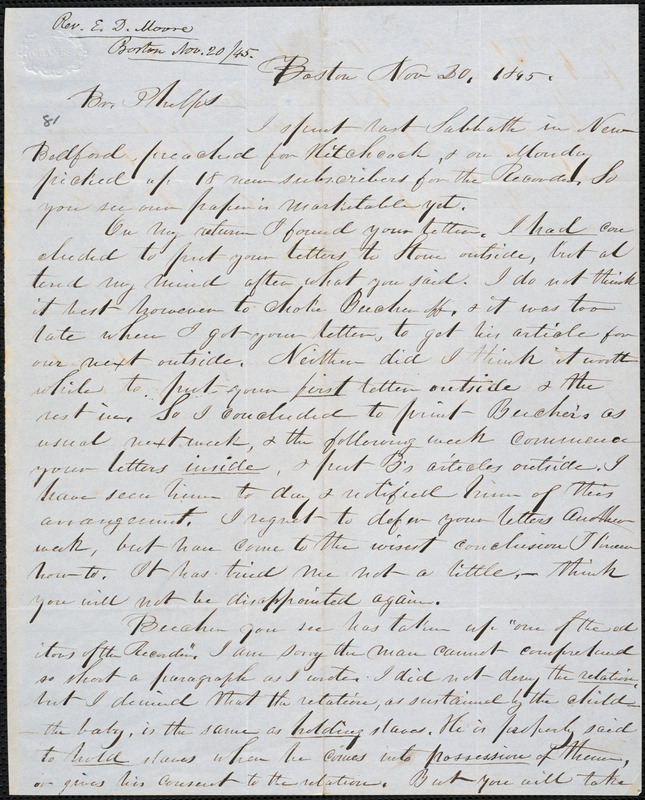 Rev. E. D. Moore
Boston Nov. 20/45.
Boston Nov 20, 1845.
Br. Phelps
81
I spent last Sabbath in New
Bedford, preached for Hitchcock, & on Monday
picked up 18 new subscribers for the Recorder. So
you see our paper is marketable yet.
On my return I found your letter. I had con
cluded to put your letters to Stowe outside, but al
tered my mind after what you said. I do not think
it best however to choke Beecher off, & it was too
late when I got your letter, to get his article for
our next outside. Neither did I think it worth
while to put your first letter outside & the
rest in. So I concluded to print Beecher's as
usual next week, & the following week commence
your letters inside, & put B's articles outside. I
have seen him to day, & notified him of this
arrangement. I regret to defer your letters another
week, but have come to the wisest conclusion I knew
how to. It has tried me not a little, – think
you will not be disappointed again.
Beecher you see has taken up "one of the ed
itors of the Recorder". I am sorry the man cannot comprehend
so short a paragraph as I wrote. I did not deny the relation,
but I denied that the relation, as sustained by the child –
the baby, is the same as holding slaves. He is properly said
to hold slaves when he comes into possession of them,
or gives his consent to the relation. But you will take